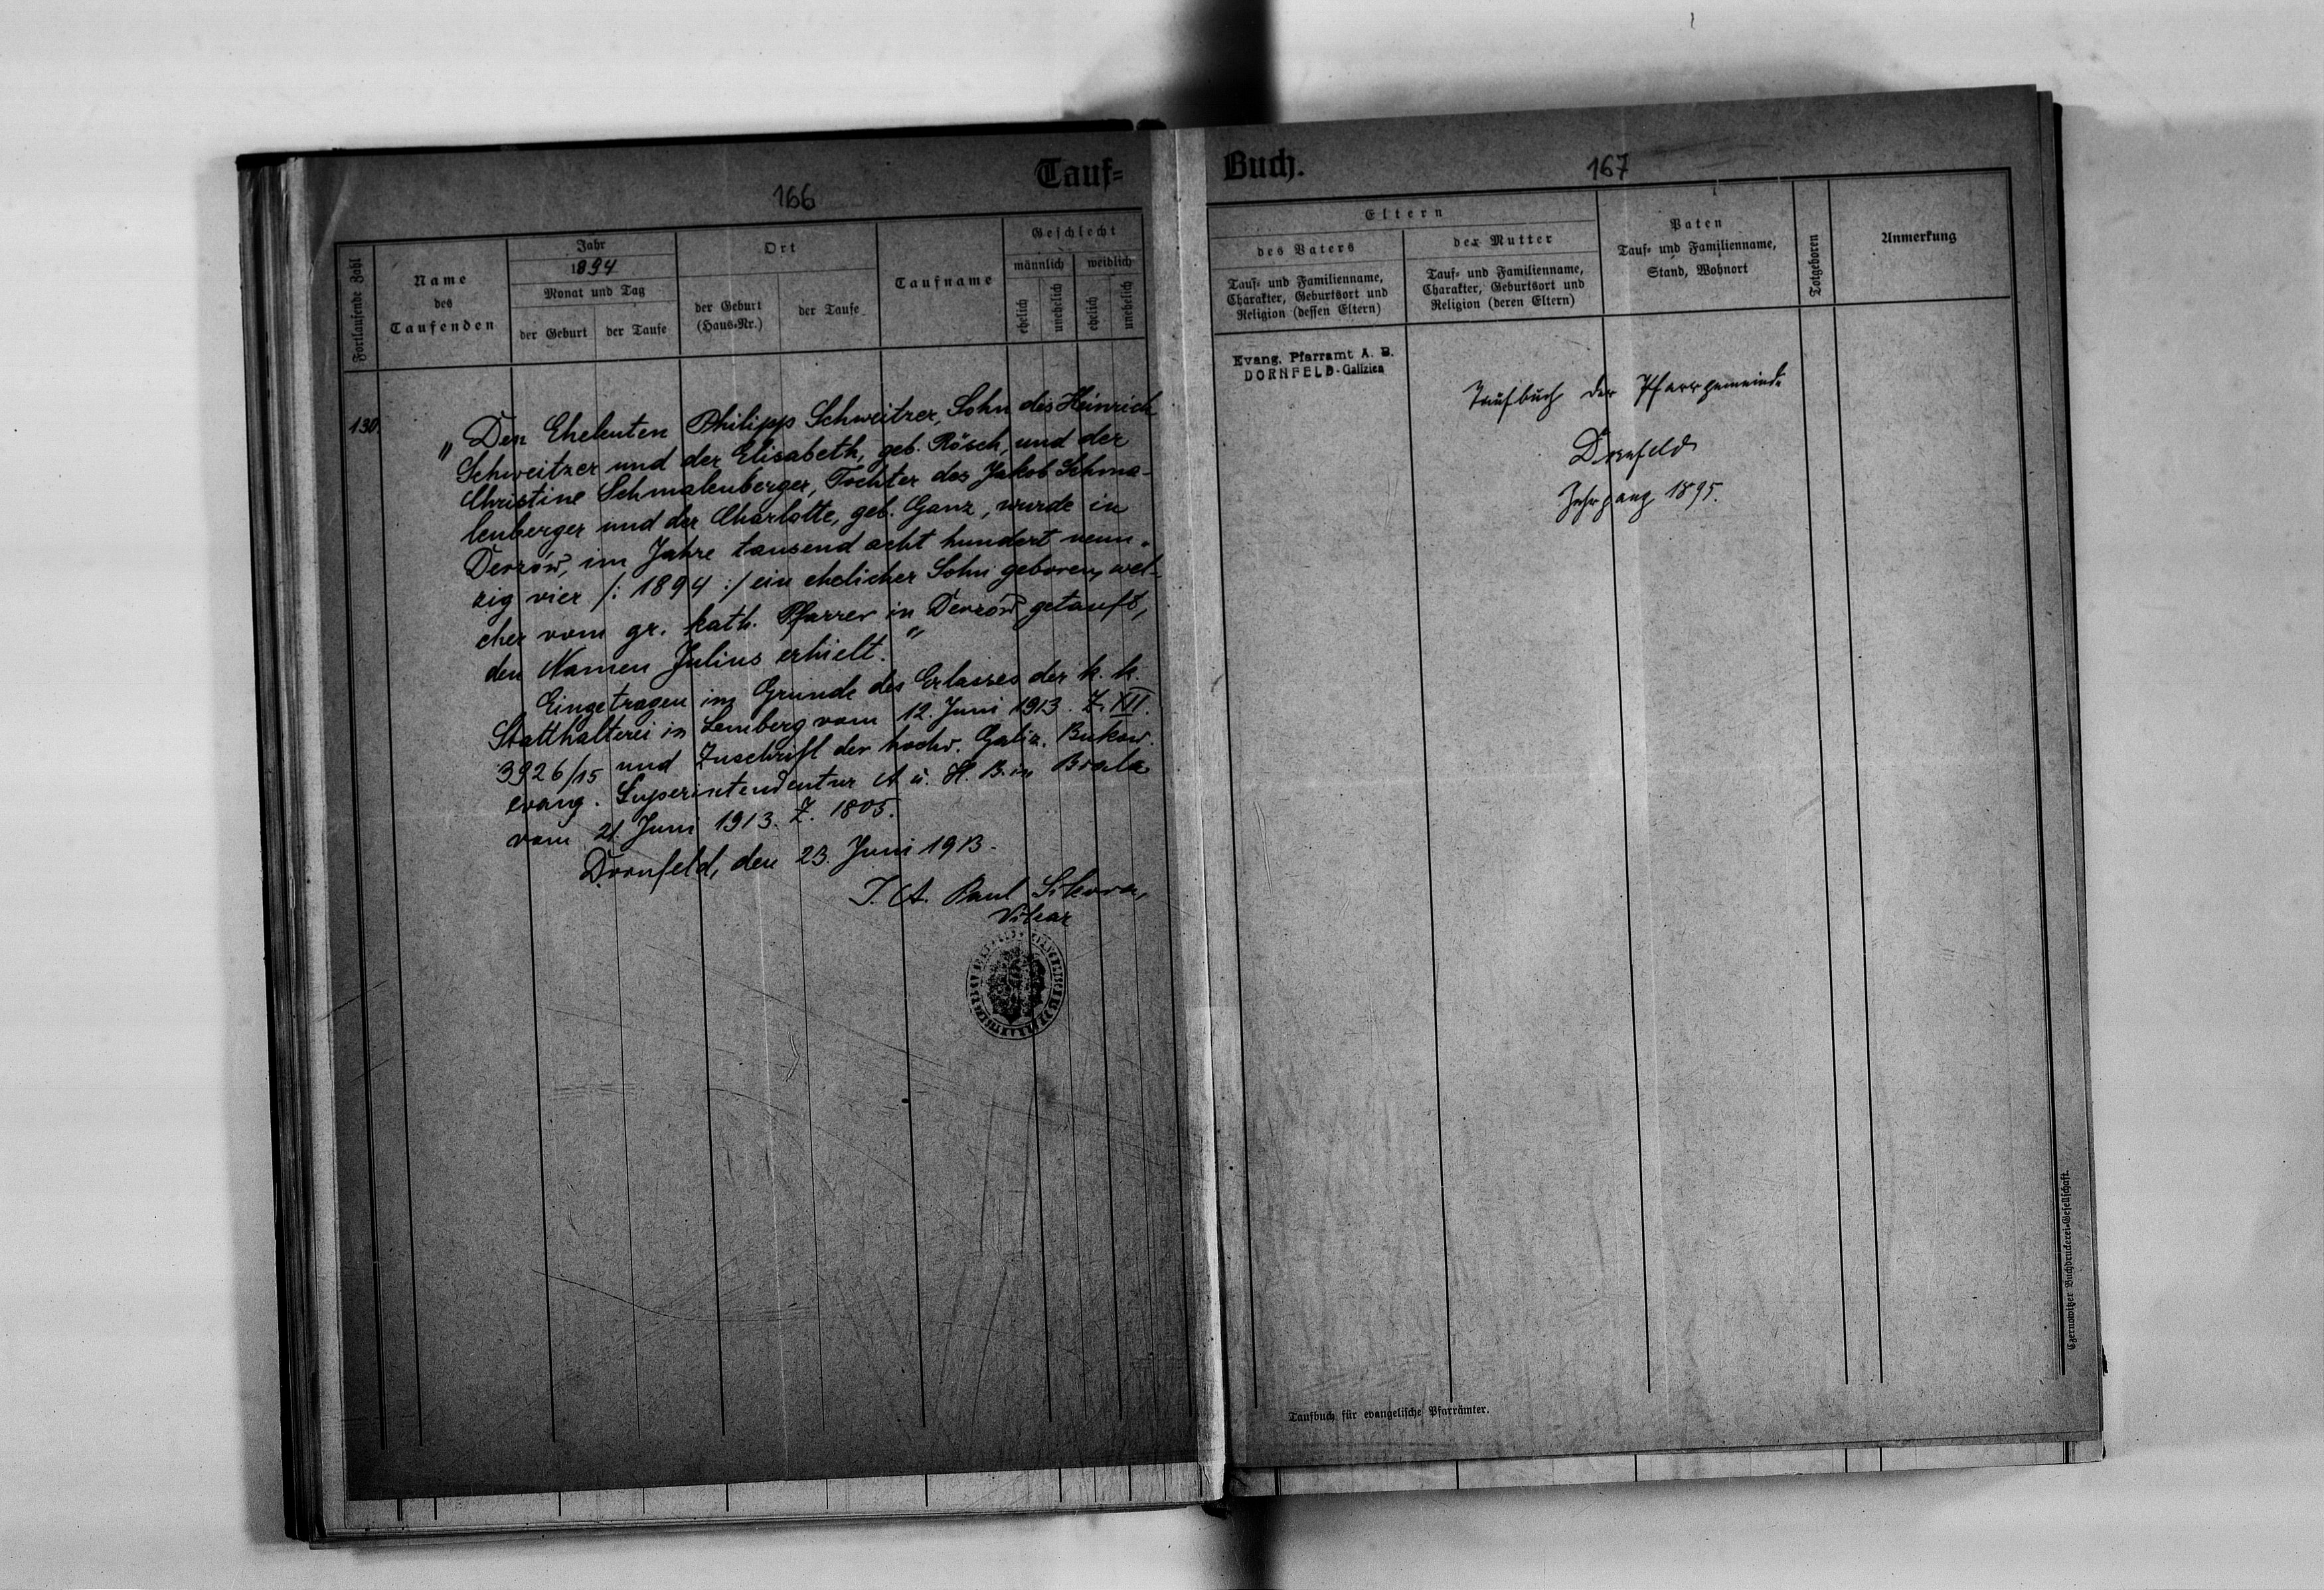 Tauf=
166
Fortlaufende Zahl
Name
des
Taufenden
Jahr
1894
Monat und Tag
der Geburt
der Taufe
Ort
der Geburt
(Haus-Nr.)
der Taufe
Taufname
Geschlecht
männlich
weiblich
ehelich
unehelich
ehelich
unehelich
130.
„Den Eheleuten Philipp Schweitzer, Sohn des Heinrich
Schweitzer und der Elisabeth, geb. Rösch, und der
Christine Schmalenberger, Tochter des Jakob Schma-
lenberger und der Charlotte, geb. Ganz, wurde in
Derzów, im Jahre tausend acht hundert neun-
zig vier /: 1894 :/ ein ehelicher Sohn geboren, wel-
cher vom gr. kath. Pfarrer in Derzów getauft,
den Namen Julius erhielt."
Eingetragen im Grunde des Erlasses der k. k.
Statthalterei in Lemberg vom 12. Juni 1913. Z. XII.
3926/15 und Zuschrift der hochw. Galiz. Bukow.
evang. Superintendentur A u. H. B. in Biala
vom 21. Juni 1913. Z. 1805.
Dornfeld, den 23. Juni 1913.
I. A. Paul Sikora,
Vikar
Buch.
167
Eltern
des Vaters
Tauf= und Familienname,
Charakter, Geburtsort und
Religion (dessen Eltern)
der Mutter
Tauf= und Familienname,
Charakter, Geburtsort und
Religion (deren Eltern)
Paten
Tauf= und Familienname,
Stand, Wohnort
Totgeboren
Anmerkung
Evang. Pfarramt A. B.
DORNFELD-Galizien
Taufbuch der Pfarrgemeinde
Dornfeld
Jahrgang 1895.
Taufbuch für evangelische Pfarrämter.
Czernowitzer Buchdruckerei=Gesellschaft.